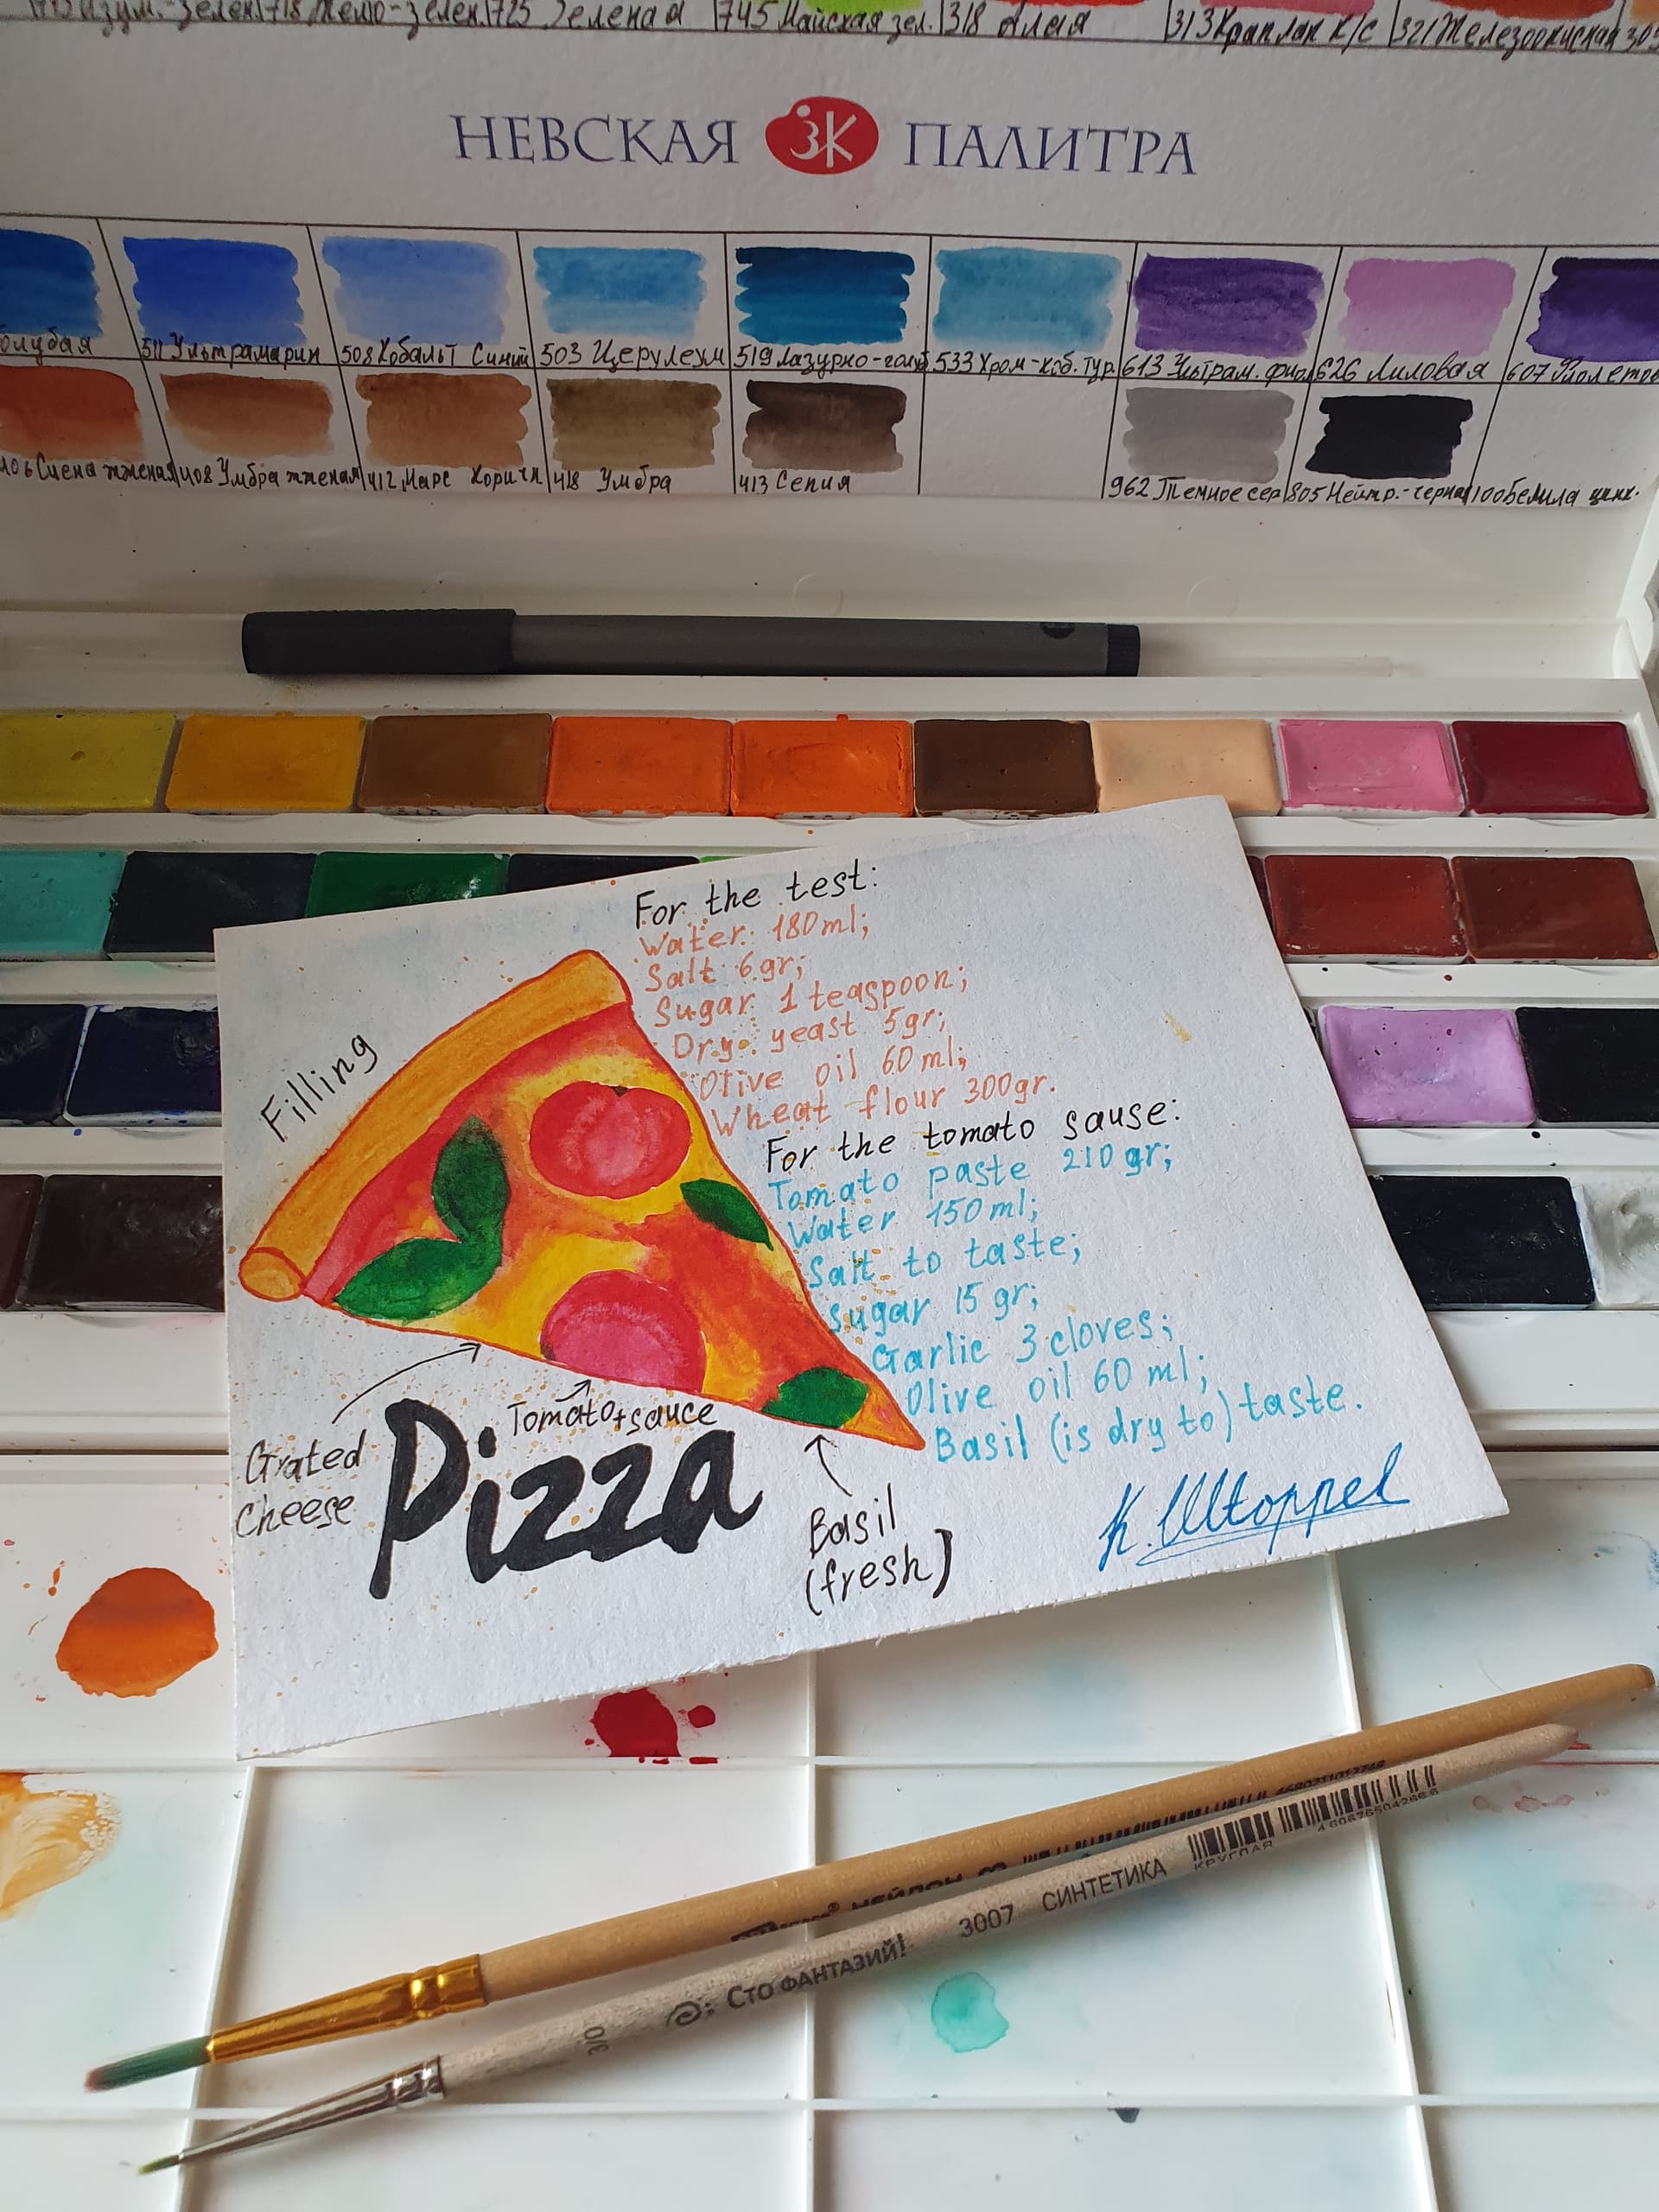 718 Темно-зелен.
725 Зеленая
745 Майская зел.
318 Алая
313 Краплак к/с
321 Железоокисная
НЕВСКАЯ ЗК ПАЛИТРА
511 Ультрамарин
508 Кобальт Синий
503 Церулеум
519 Лазурно-голуб
533 Хром-коб. тур.
613 Ультрам. фио
626 Лиловая
607 Фиолетов
406 Сиена жженая
408 Умбра жженая
412 Марс Коричн
418 Умбра
413 Сепия
962 Темно сер
805 Нейтр.-черная
100 Белила цинк.
For the test:
Water: 180 ml;
Salt 6 gr;
Sugar 1 teaspoon;
Dry yeast 5gr;
Olive oil 60 ml;
Wheat flour 300gr.
For the tomato sause:
Tomato paste 210 gr;
Water 150 ml;
Salt to taste;
Sugar 15 gr;
Garlic 3 cloves;
Olive oil 60 ml;
Basil (is dry to) taste.
Filling
Grated
Cheese
Tomato+sauce
Pizza
Basil
(fresh)
К. Штоppel
НЕЙЛОН
Сто ФАНТАЗИЙ! 3007 СИНТЕТИКА КРУГЛАЯ
3/0